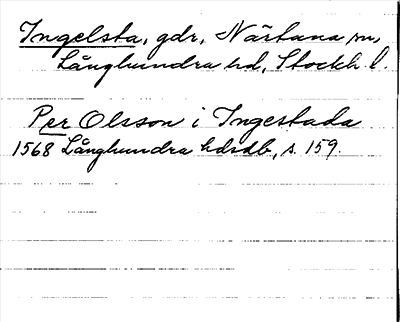 Ingelsta, gdr, Närtuna sn,
Långhundra hd, Stockh. l.
Per Olsson i Ingestada
1568 Långhundra hdsdb, s. 159.